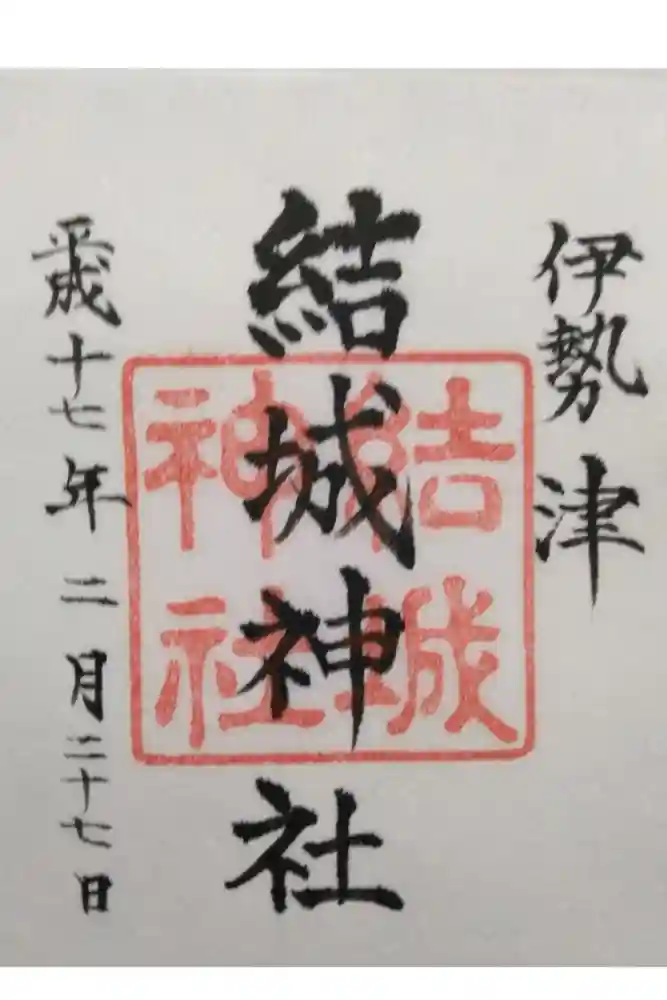 伊勢津
結城神社
結城神社
平成十七年二月二十七日